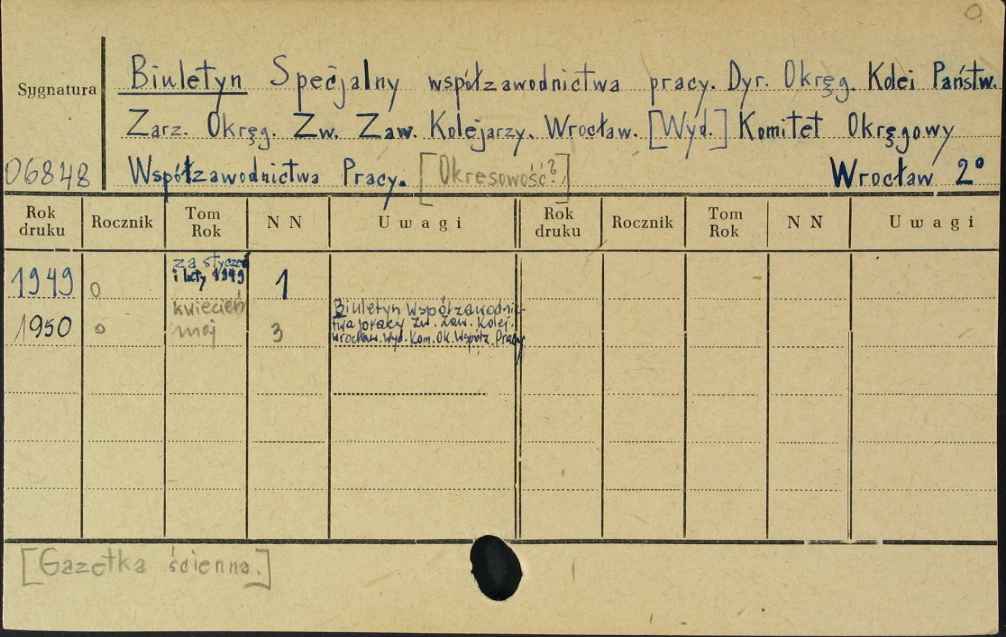 O.
Biuletyn Specjalny współzawodnictwa pracy. Dyr. Okręg. Kolei Państw.
Sygnatura
Zarz. Okręg. Zw. Zaw. Kolejarzy. Wrocław. [Wyd.] Komitet Okręgowy
06848 Współzawodnictwa Pracy. [Okresowość?] Wrocław 2°
Rok druku Rocznik Tom Rok N N Uwagi Rok druku Rocznik Tom Rok N N Uwagi
1949 0 za styczeń i luty 1949 1
1950 0 kwiecień maj 3 Biuletyn Współzawodnictwa pracy Zw. Zaw. Kolej. Wrocław. Wyd. Kom. Ok. Współz. Pracy
[Gazetka ścienna.]